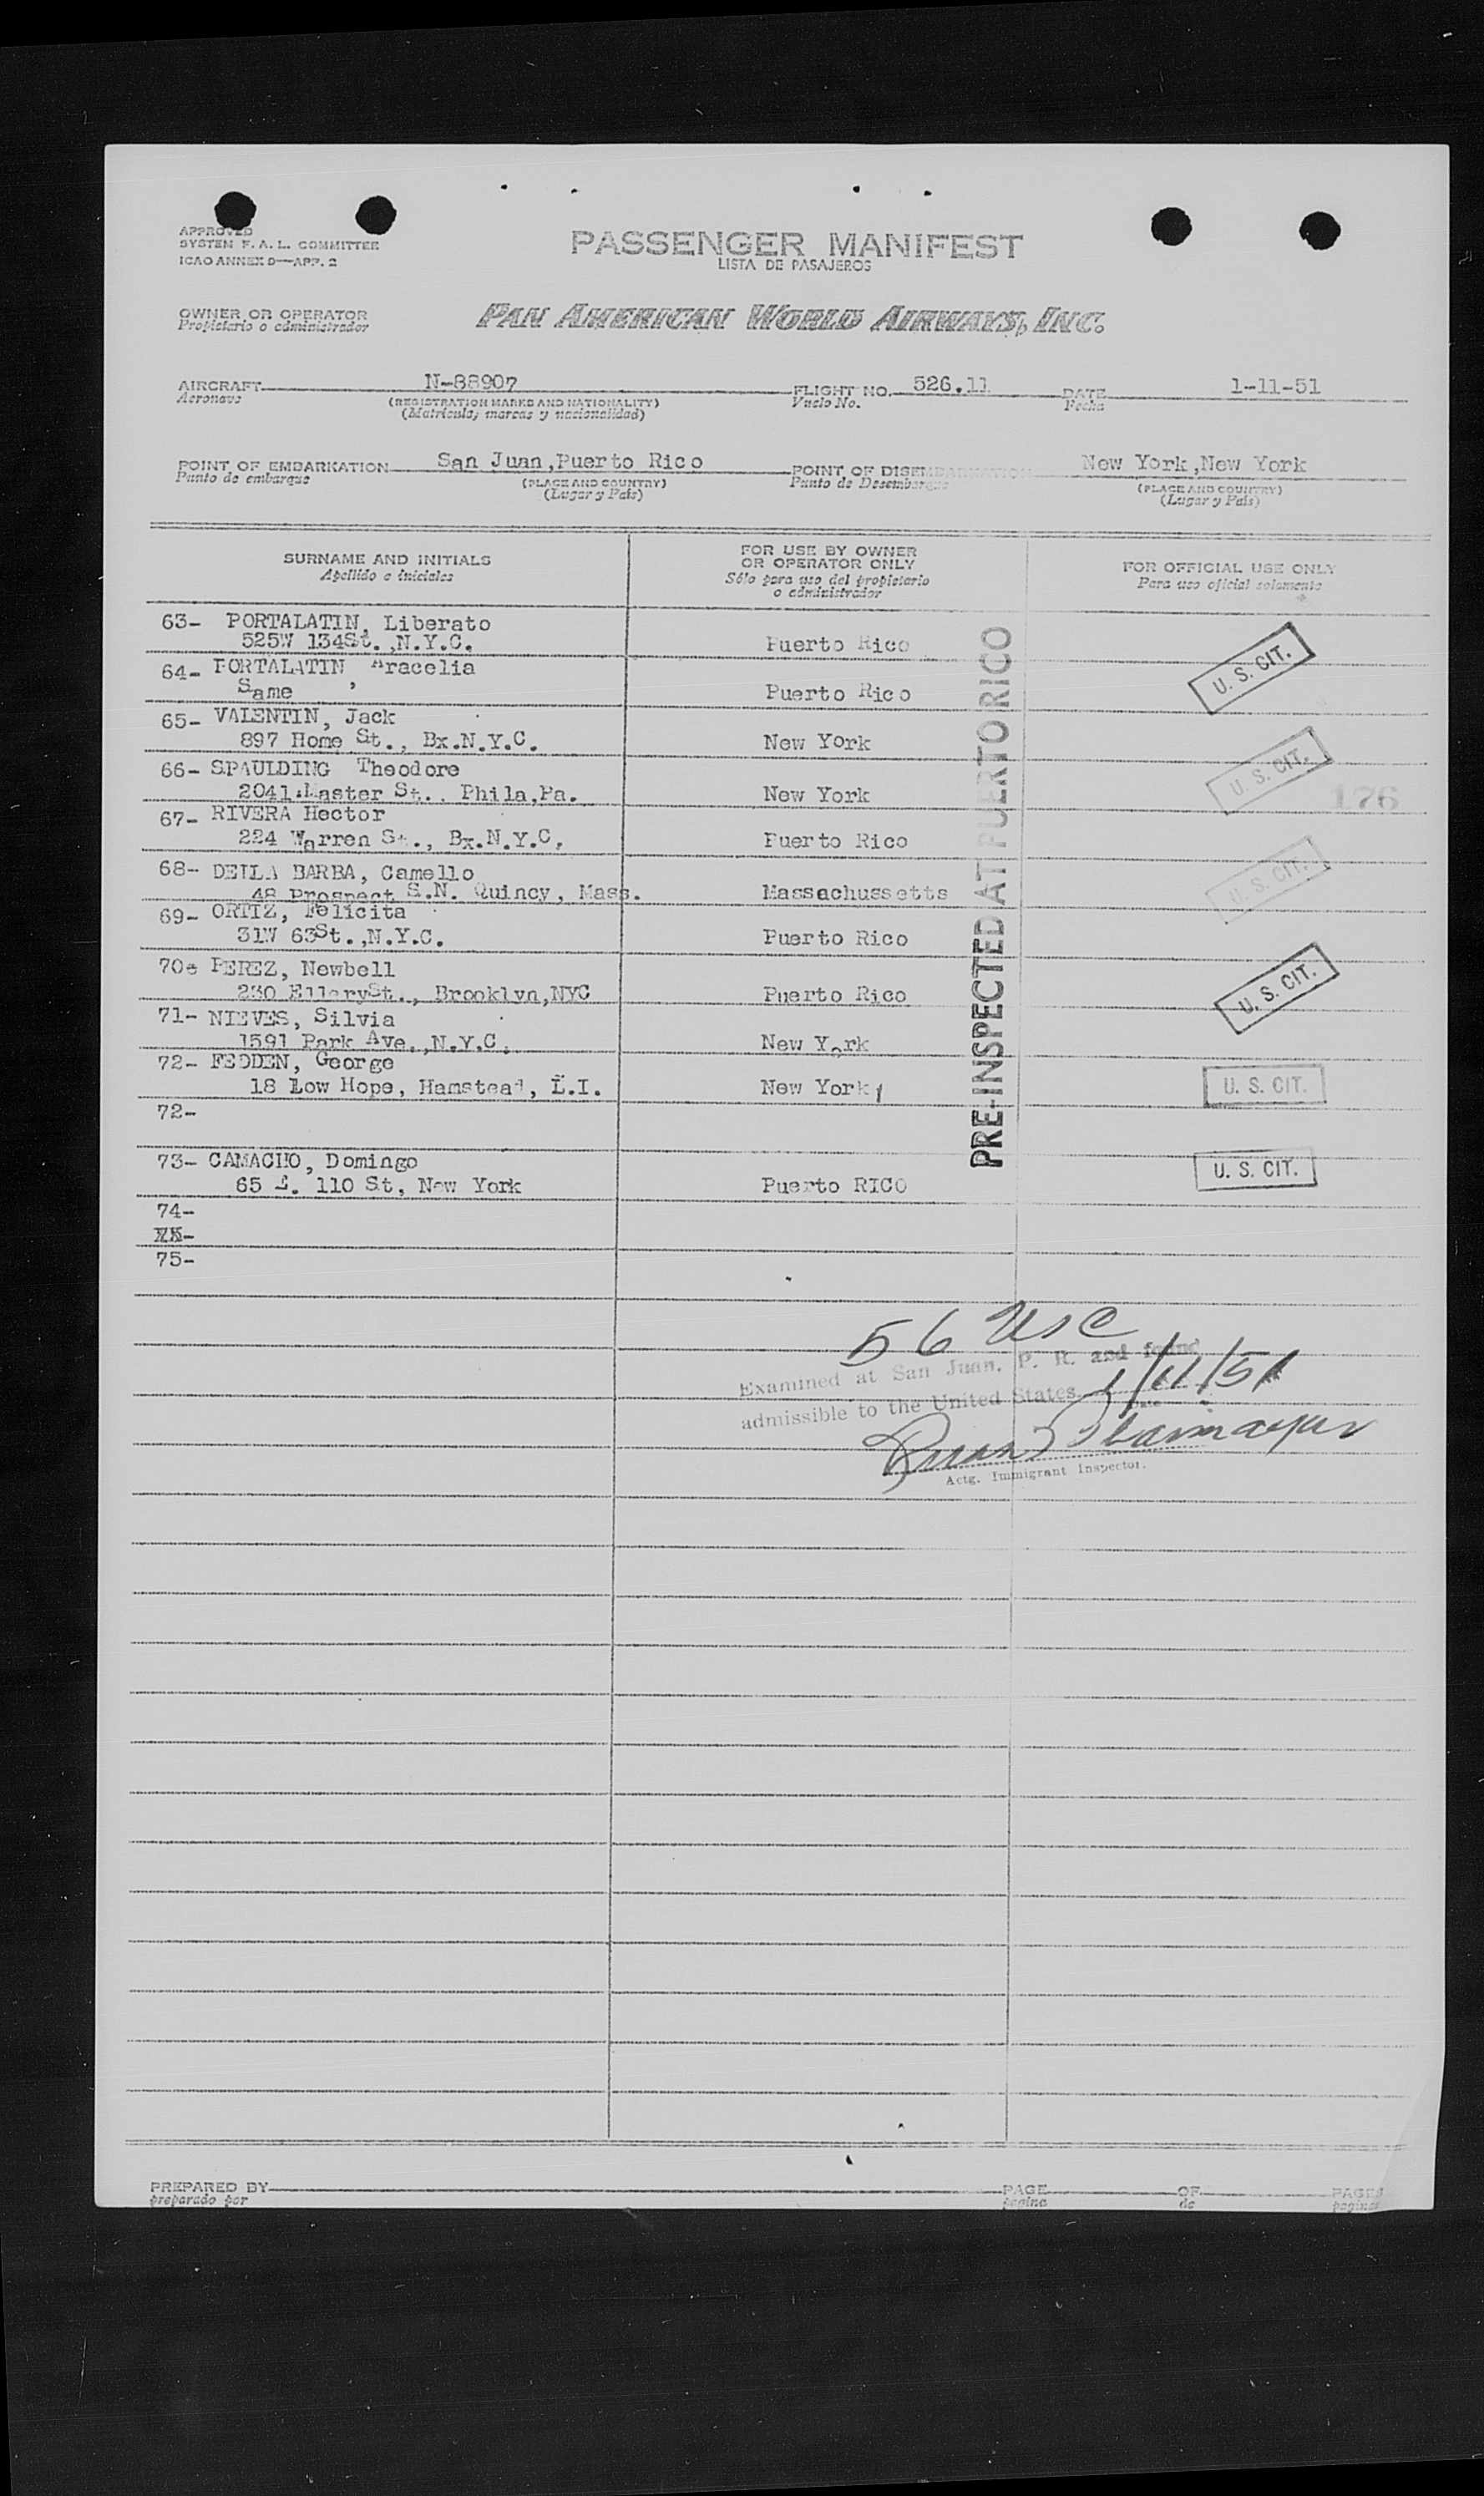 APPROVED
SYSTEM F. A. L. COMMITTEE
ICAO ANNEX 9—APP. 2
PASSENGER MANIFEST
LISTA DE PASAJEROS
OWNER OR OPERATOR
Propietario o administrador
PAN AMERICAN WORLD AIRWAYS, INC.
AIRCRAFT N-88907 FLIGHT NO. 526.11 DATE 1-11-51
Aeronave (REGISTRATION MARKS AND NATIONALITY) Vuelo No. Fecha
(Matricula, marcas y nacionalidad)
POINT OF EMBARKATION San Juan,Puerto Rico POINT OF DISEMBARKATION New York,New York
Punto de embarque (PLACE AND COUNTRY) Punto de Desembarque (PLACE AND COUNTRY)
(Lugar y País) (Lugar y País)
SURNAME AND INITIALS FOR USE BY OWNER OR OPERATOR ONLY FOR OFFICIAL USE ONLY
Apellido e iniciales Sólo para uso del propietario o administrador Para uso oficial solamente
63- PORTALATIN, Liberato
525W 134St.,N.Y.C. Puerto Rico
64- PORTALATIN, Aracelia U. S. CIT.
Same Puerto Rico
65- VALENTIN, Jack
897 Home St., Bx.N.Y.C. New York
66- SPAULDING Theodore U. S. CIT.
2041 Master St., Phila,Pa. New York 176
67- RIVERA Hector
224 Warren St., Bx.N.Y.C. Puerto Rico
68- DELLA BARBA, Camello U. S. CIT.
48 Prospect S.N. Quincy, Mass. Massachussetts
69- ORTIZ, Felicita
31W 63St.,N.Y.C. Puerto Rico
70- PEREZ, Newbell U. S. CIT.
230 EllerySt., Brooklyn,NYC Puerto Rico
71- NIEVES, Silvia
1591 Park Ave.,N.Y.C. New York
72- FEDDEN, George U. S. CIT.
18 Low Hope, Hamstead, L.I. New York
72-
73- CAMACHO, Domingo U. S. CIT.
65 E. 110 St, New York Puerto RICO
74-
75-
PRE-INSPECTED AT PUERTO RICO
56 USC
Examined at San Juan, P. R. and found
admissible to the United States 1/11/51
Date
Actg. Immigrant Inspector.
PREPARED BY PAGE OF PAGES
preparado por pagina de paginas